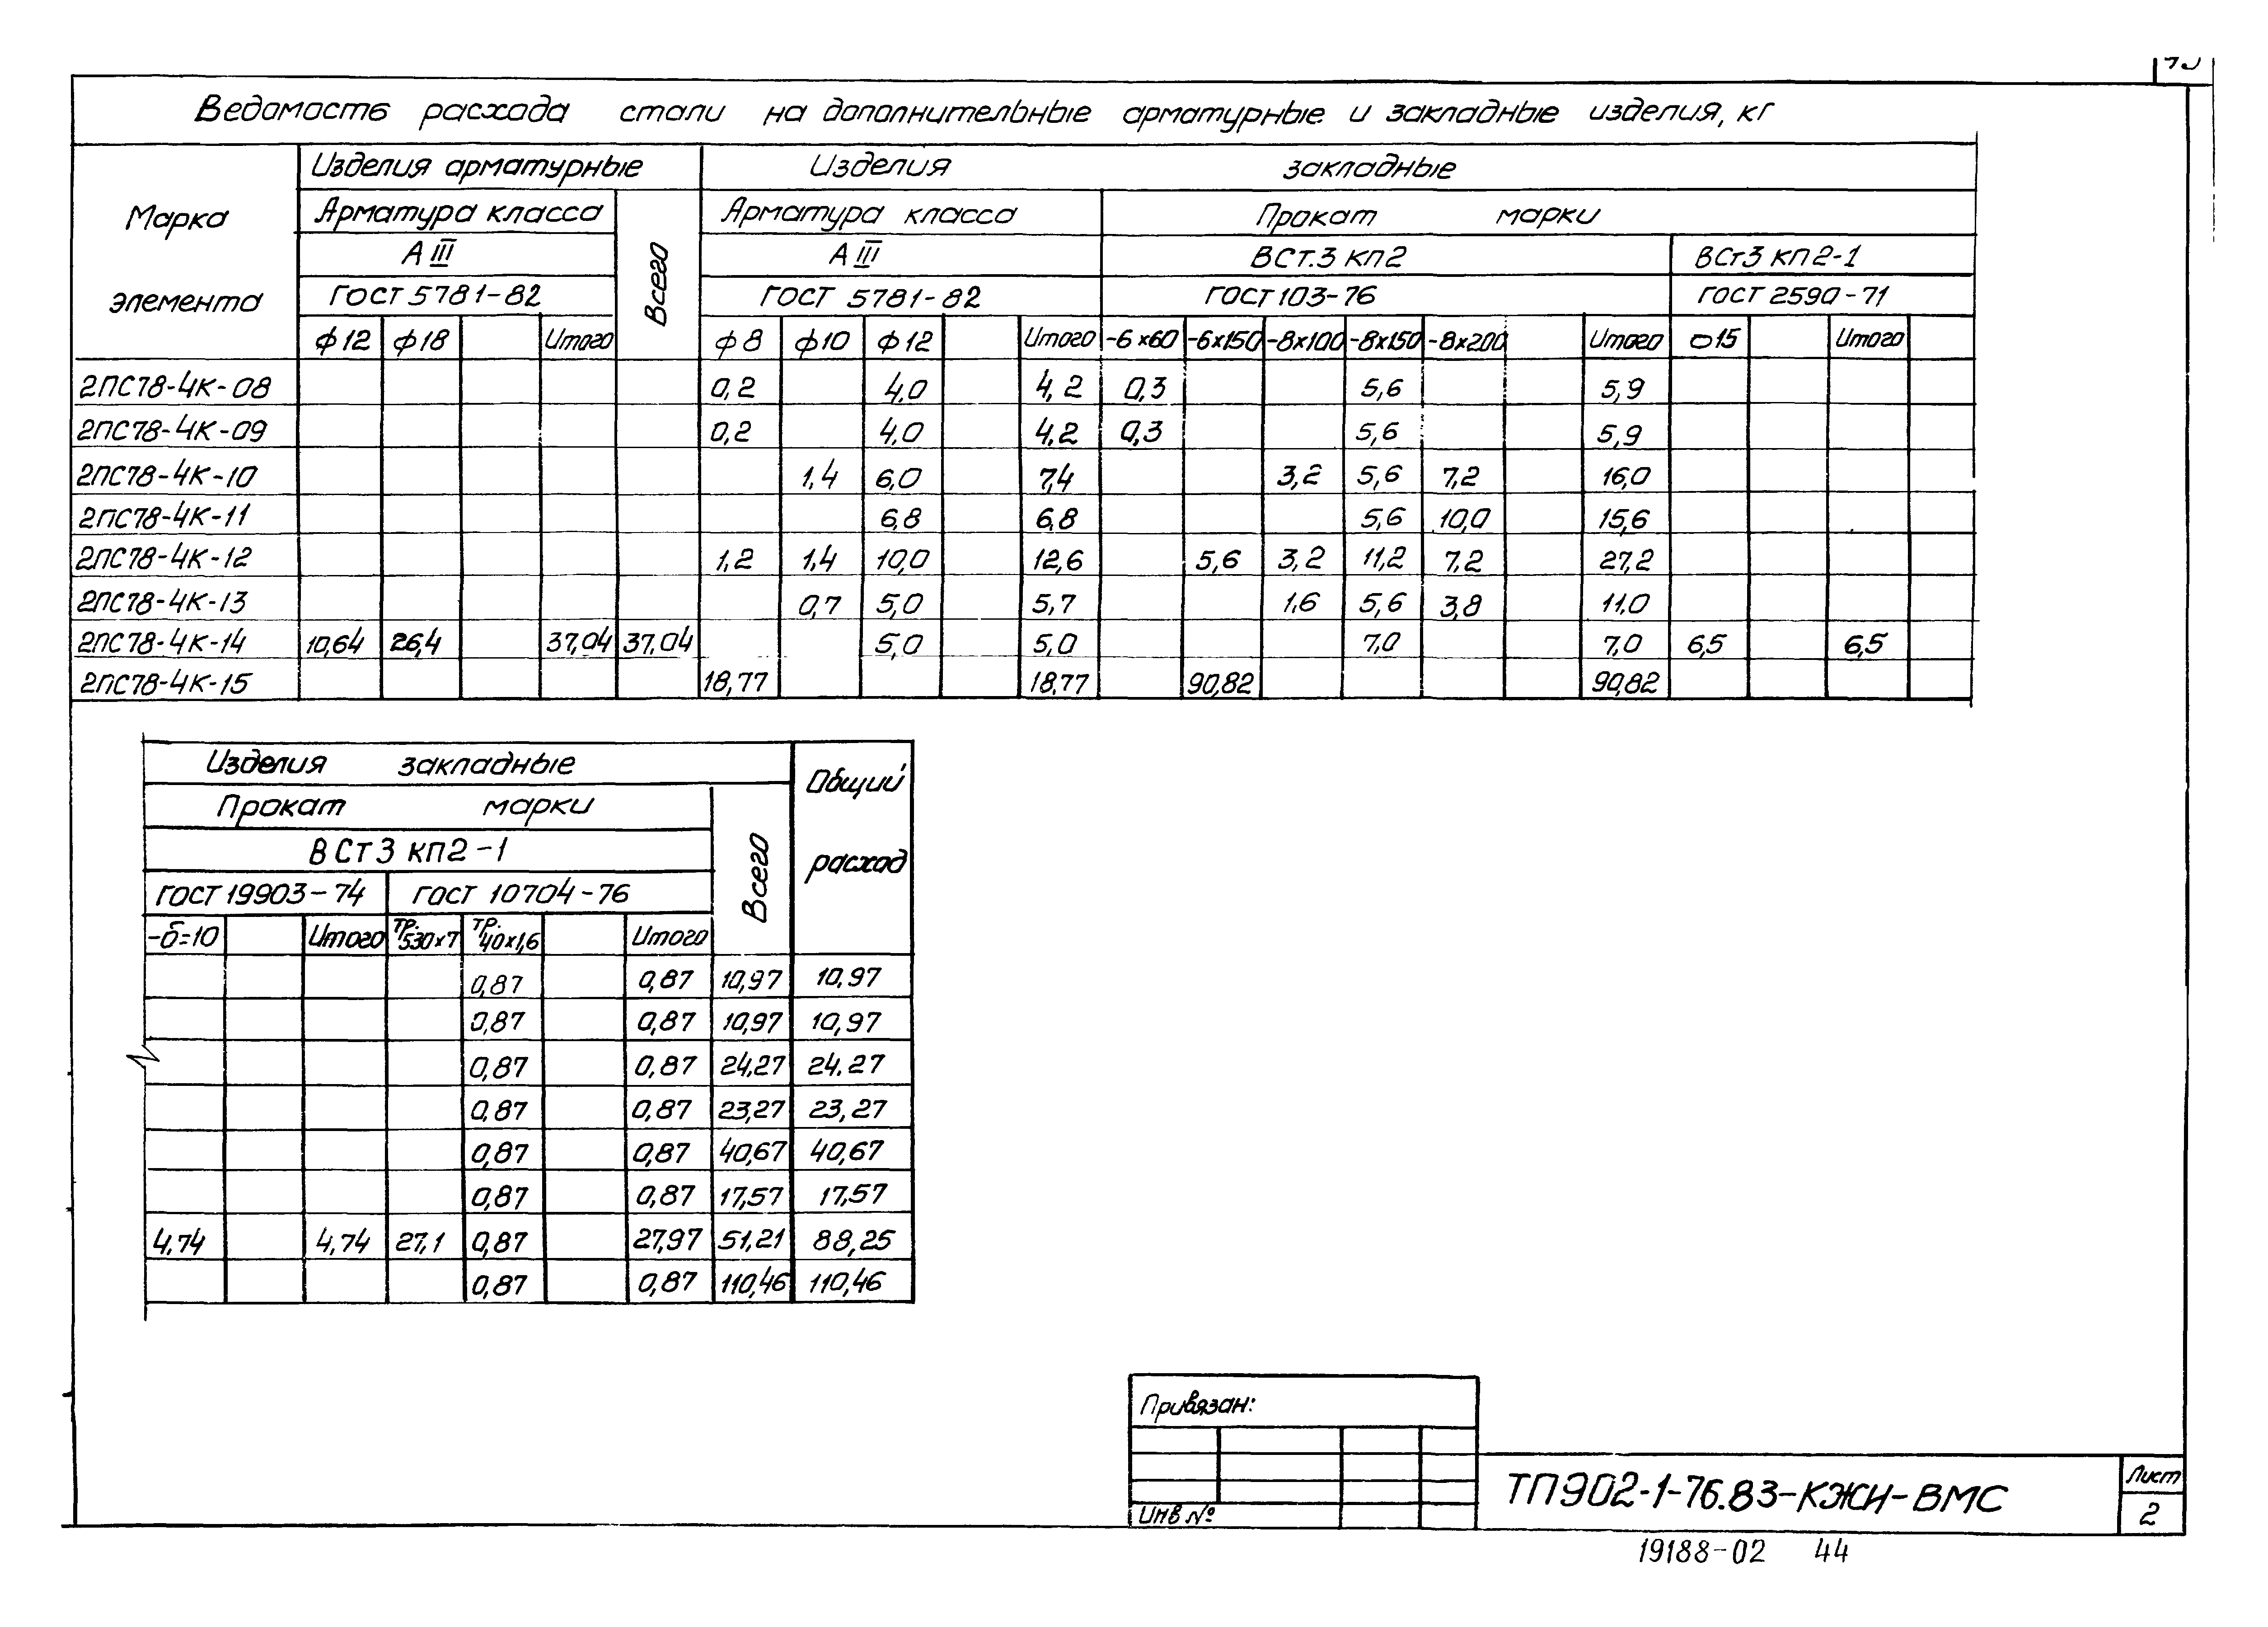 Ведомость расхода стали на дополнительные арматурные и закладные изделия, кг
Марка элемента
Изделия арматурные
Изделия закладные
Арматура класса
Всего
Арматура класса
Прокат марки
А III
А III
ВСт.3 кп2
ВСт3 кп2-1
ГОСТ 5781-82
ГОСТ 5781-82
ГОСТ 103-76
ГОСТ 2590-71
ф12 ф18 Итого ф8 ф10 ф12 Итого -6x60 -6x150 -8x100 -8x150 -8x200 Итого 15 Итого
2ПС78-4К-08 0,2 4,0 4,2 0,3 5,6 5,9
2ПС78-4К-09 0,2 4,0 4,2 0,3 5,6 5,9
2ПС78-4К-10 1,4 6,0 7,4 3,2 5,6 7,2 16,0
2ПС78-4К-11 6,8 6,8 5,6 10,0 15,6
2ПС78-4К-12 1,2 1,4 10,0 12,6 5,6 3,2 11,2 7,2 27,2
2ПС78-4К-13 0,7 5,0 5,7 1,6 5,6 3,8 11,0
2ПС78-4К-14 10,64 26,4 37,04 37,04 5,0 5,0 7,0 7,0 6,5 6,5
2ПС78-4К-15 18,77 18,77 90,82 90,82
Изделия закладные
Общий расход
Прокат марки
Всего
ВСт3 кп2-1
ГОСТ 19903-74 ГОСТ 10704-76
-δ=10 Итого тр. 530x7 тр. 40x1,6 Итого
0,87 0,87 10,97 10,97
0,87 0,87 10,97 10,97
0,87 0,87 24,27 24.27
0,87 0,87 23,27 23,27
0,87 0,87 40,67 40,67
0,87 0,87 17,57 17,57
4,74 4,74 27,1 0,87 27,97 51,21 88,25
0,87 0,87 110,46 110,46
Привязан:
Инв №
ТП902-1-76.83-КЖИ-ВМС
Лист
2
19188-02 44